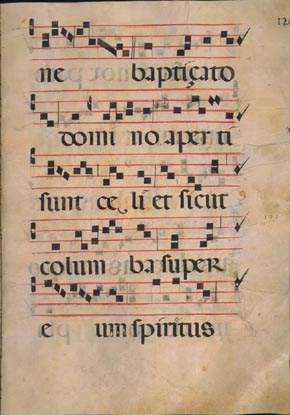 ne baptiçato
domino aperti
sunt celi et sicut
columba super
eum spiritus